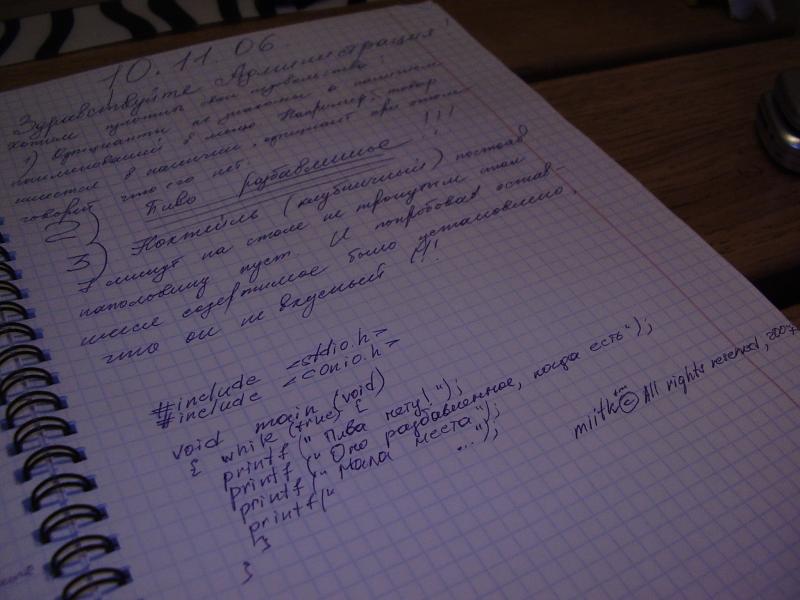 10.11.06.
Здравствуйте Администрация!
хотим
1) Официанты не знакомы с наличием
наименований в меню. Например, товар
имеется в наличии, официант при этом
говорит что его нет. !!!
2) Пиво разбавленное
3) Коктейль (клубничный) постояв
7 минут на столе не тронутым стал
наполовину пуст. И попробовав остав-
шееся содержимое было установлено,
что он не вкусный!
#include <stdio.h>
#include <conio.h>
void main (void)
{ while (true) {
printf ("Пива нету!");
printf ("Оно разбавленное, когда есть");
printf ("Мала места");
printf ("...");
}
}
miitk™ © All rights reserved, 200